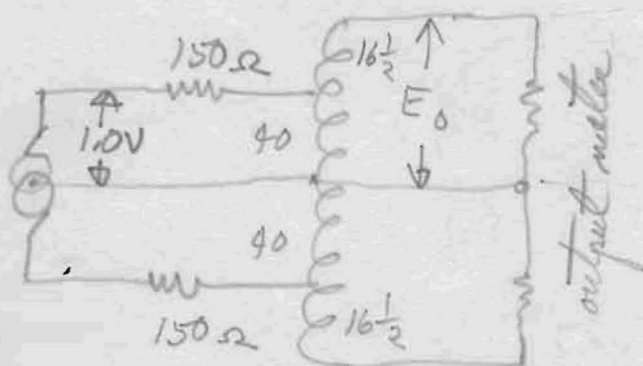 150Ω
16 1/2
1.0V
E₀
40
40
150Ω
16 1/2
output meter